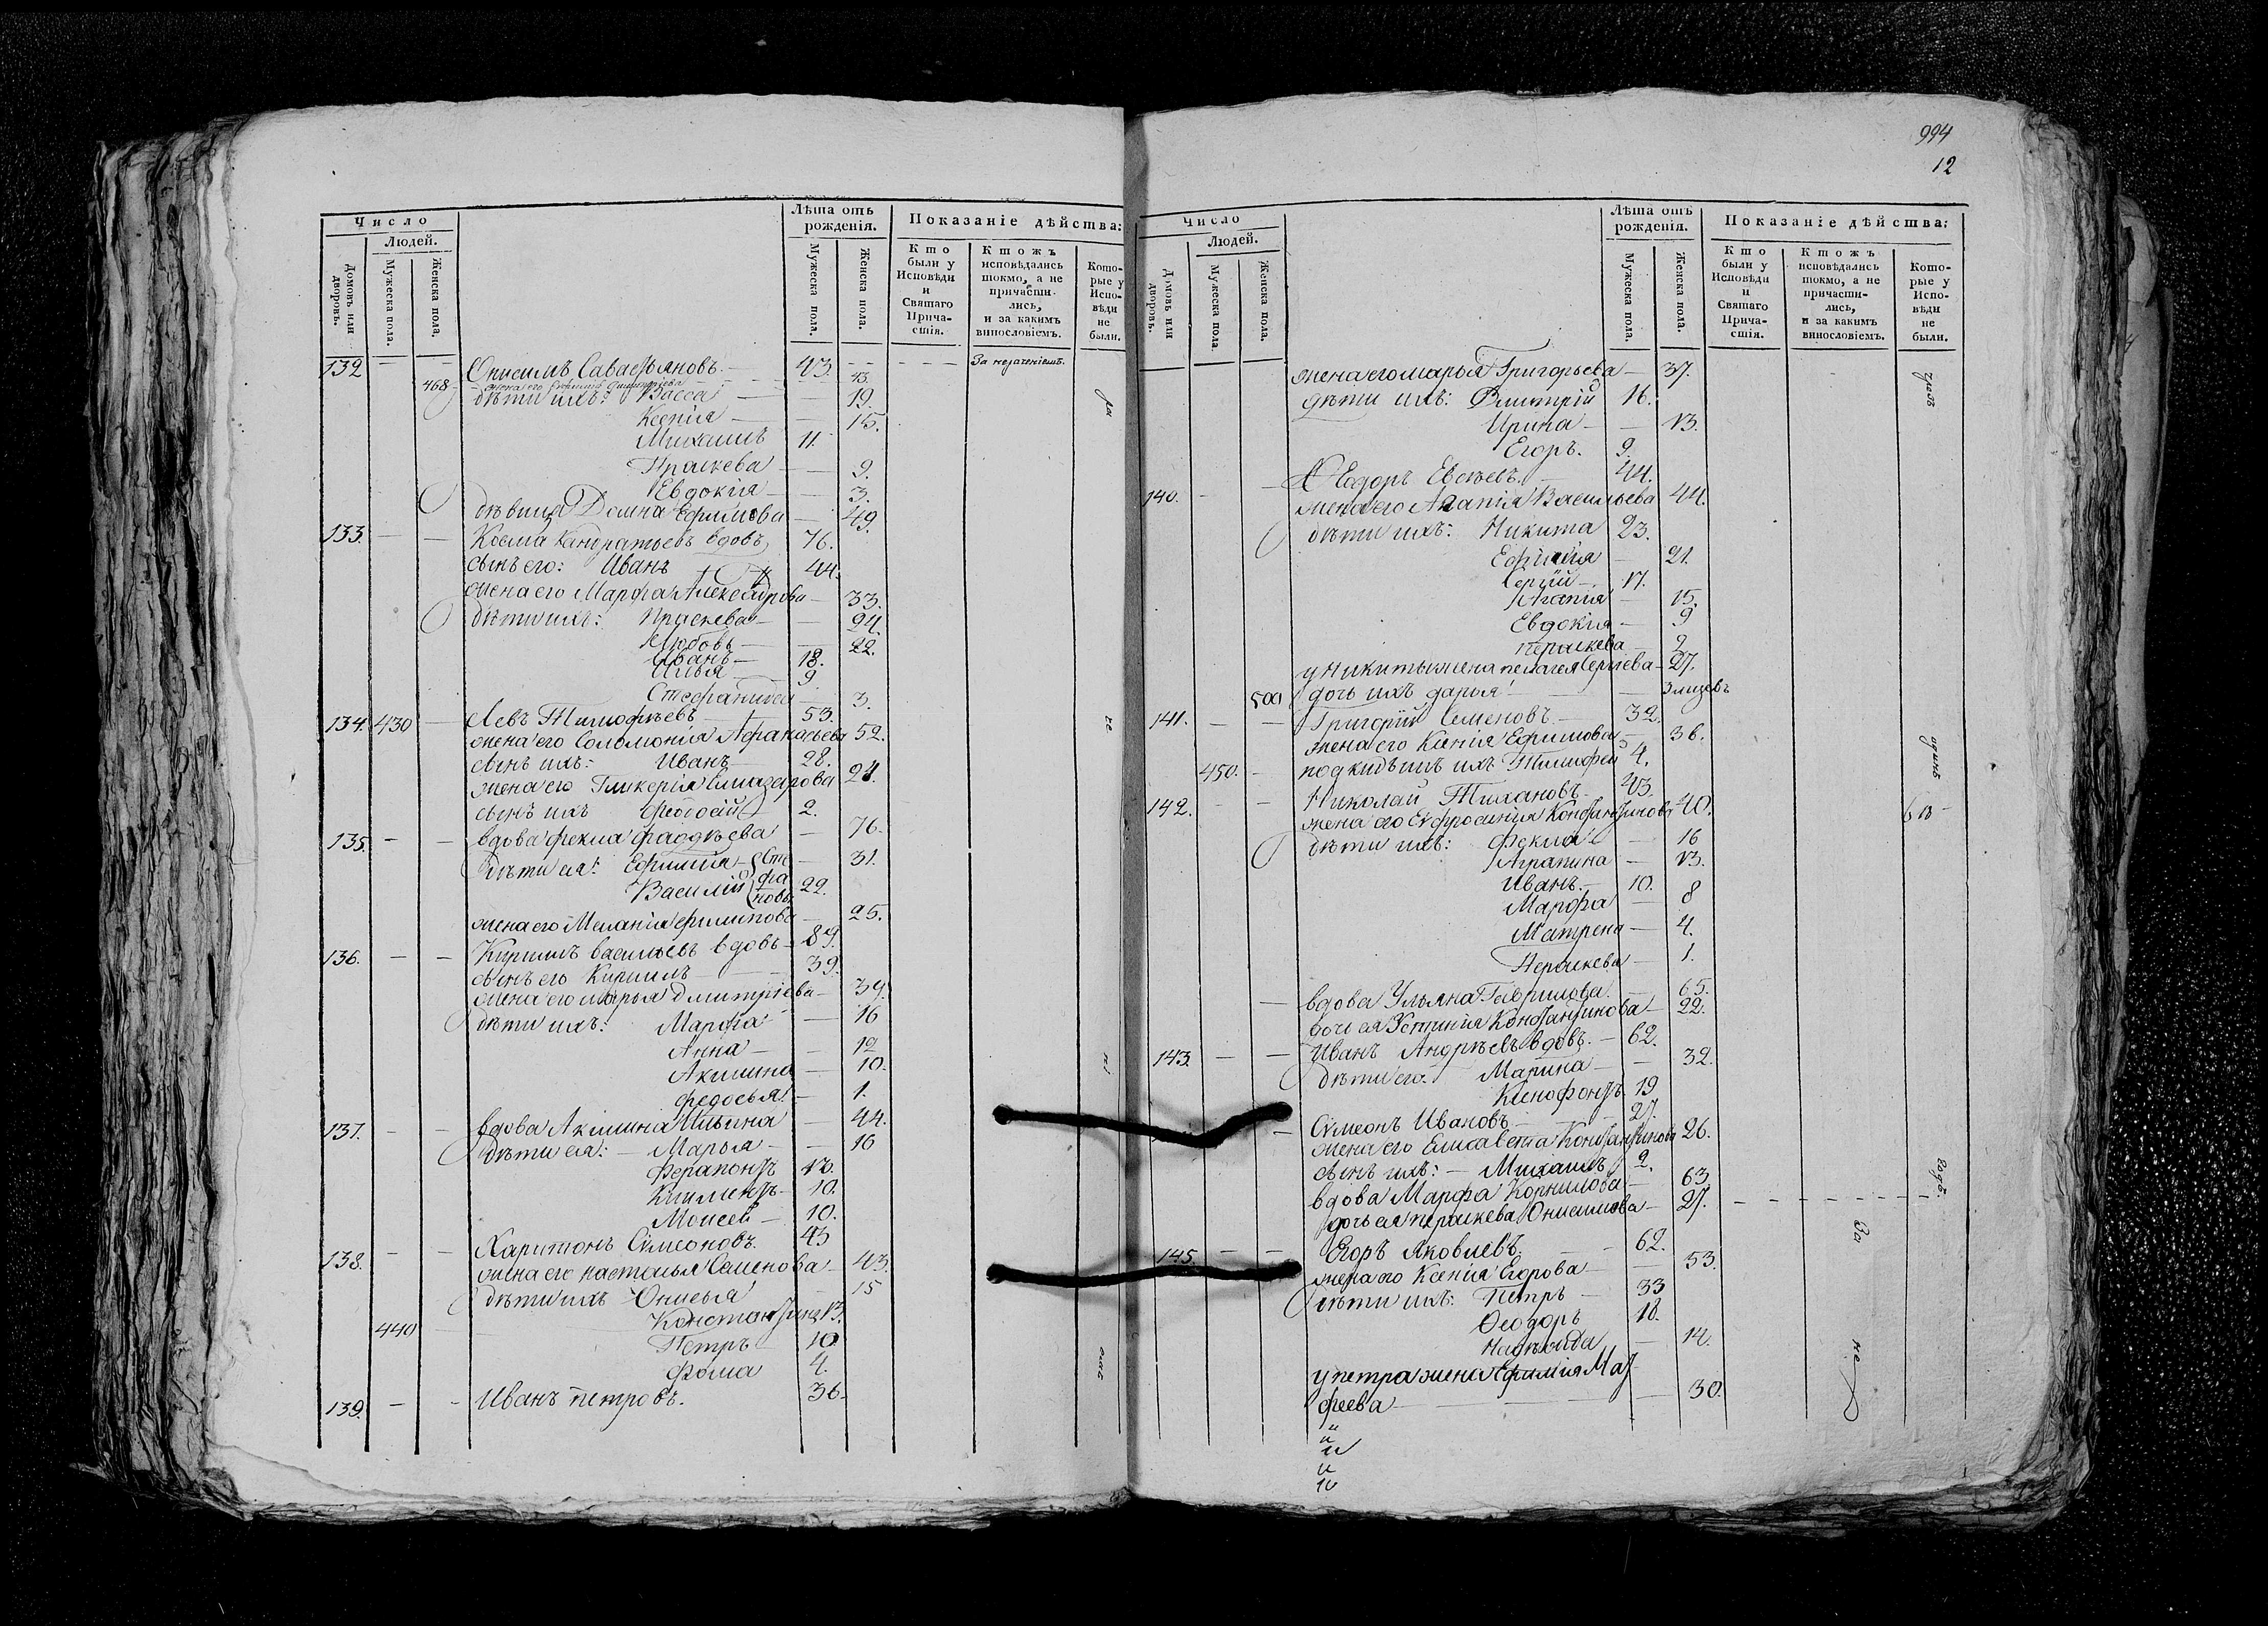 Число
Людей.
Домовъ или дворовъ.
Мужеска пола.
Женска пола.
Лѣта отъ рожденія.
Мужеска пола.
Женска пола.
Показаніе дѣйства:
Кто были у Исповѣди и Святаго Прича-стія.
Ктожъ исповѣдались токмо, а не причасти-лись, и за какимъ винословіемъ.
Кото-рые у Испо-вѣди не были.
132 — — Онисимъ Савастьяновъ — 43 За нерачениемъ.
468 жена его 43.
дѣти ихъ: Васса — 19.
Ксенія — 15.
Михаилъ 11
Праскева — 9.
Евдокія — 3.
дѣвица Домна Ефимова — 49.
133. — — Косма Кандратьевъ вдовъ 76.
сынъ его: Иванъ 44.
жена его Марфа Александрова — 33.
дѣти ихъ: Праскева — 24.
Любовь — 22.
Иванъ — 18.
Илья 9
Стефанида — 3.
134. 430 — Левъ Тимофѣевъ — 53.
жена его Соломонія Афанасьева 52.
сынъ ихъ: Иванъ 28.
жена его Гликерія Елиазарова 28.
сынъ ихъ Феодосій 2.
135. — — вдова Фекла Фаддѣева — 76.
дѣти ея: Ефимія — { Сте 31.
Василій { фа 22.
новы
жена его Меланія Филипова — 25.
136. — — Кирилъ Васильевъ вдовъ — 89.
сынъ его Кирилъ — 39.
жена его Марья Дмитріева — 39.
дѣти ихъ: Марфа — 16
Анна — 12
Акилина — 10.
Федосья — 1.
137. — — вдова Акилина Ильина — 44.
дѣти ея: — Марья — 16
Ферапонтъ 13.
Климентъ — 10.
Моисей — 10.
138. — — Харитонъ Сѵмеоновъ. 45
жена его Настасья Семенова — 43.
дѣти ихъ Онисья 15
440 Константинъ 13.
Петръ 10
Фома 4.
139. — — Иванъ Петровъ. 36.
994
12
Число
Людей.
Домовъ или дворовъ.
Мужеска пола.
Женска пола.
Лѣта отъ рожденія.
Мужеска пола.
Женска пола.
Показаніе дѣйства:
Кто были у Исповѣди и Святаго Прича-стія.
Ктожъ исповѣдались токмо, а не причасти-лись, и за какимъ винословіемъ.
Кото-рые у Испо-вѣди не были.
жена его Марья Григорьева — 37.
дѣти ихъ: Дмитрій 16.
Ирина — 13.
Егоръ. 9.
140. — — Ѳеодоръ Евсѣевъ. 44.
жена его Агапія Васильева 44.
дѣти ихъ: Никита 23.
Ефимія — 21.
Сергій — 17.
Агапія — 15.
Евдокія — 9
Пераскева — 2
у Никиты жена Пелагея Сергіева — 27.
500 дочь ихъ Дарья —
141. — — Григорій Семеновъ — 32.
жена его Ксенія Ефимова — 36.
450. — подкидышъ ихъ Тимофей 4.
142. — — Николай Тихановъ — 43.
жена его Евфросинія Константинова 40.
дѣти ихъ: Фекла — 16
Аграпина — 13.
Иванъ. — 10.
Марфа — 8
Матрена — 4.
Пераскева — 1.
— вдова Ульяна Гаврилова. 65.
дочь ея Устинія Константинова — 22.
143. — — Иванъ Андрѣевъ вдовъ. — 62.
дѣти его: Марина — 32.
Ксенофонтъ 19
— Сѵмеонъ Ивановъ — 27.
жена его Елисавета Константинова 26.
сынъ ихъ: — Михаилъ 2.
вдова Марфа Корнилова — 63
дочь ея Пераскева Онисимова — 27.
145. — — Егоръ Яковлевъ. 62.
жена его Ксенія Егорова — 53.
дѣти ихъ: Петръ — 33
Ѳеодоръ 18.
Надежда — 14.
у Петра жена Ефимія Мат
феева — 30.